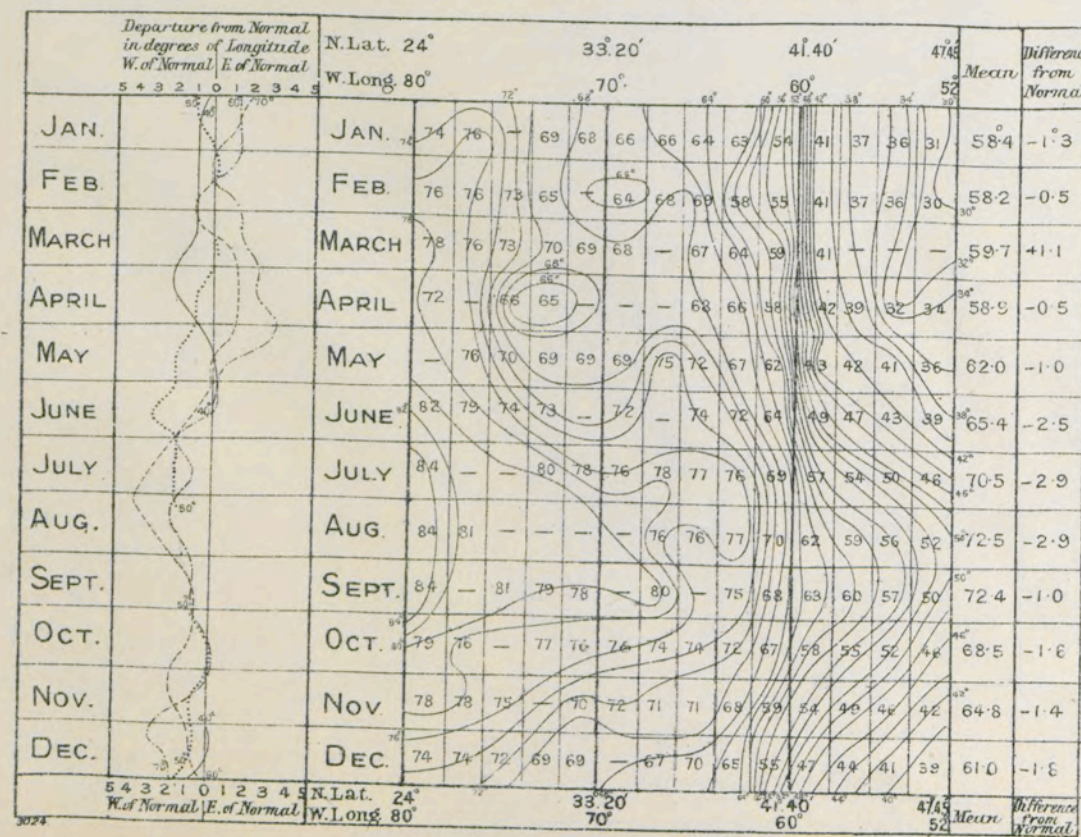 Departure from Normal
in degrees of Longitude
W. of Normal E. of Normal
5 4 3 2 1 0 1 2 3 4 5
N. Lat. 24° 33.20' 41.40' 47.45
W. Long. 80° 70° 60° 52°
Mean
Difference
from
Normal
JAN. JAN. 74 76 — 69 68 66 66 64 63 54 41 37 36 31 58.4 -1.3
FEB. FEB. 76 76 73 65 — 64 68 69 58 55 41 37 36 30 58.2 -0.5
MARCH MARCH 78 76 73 70 69 68 — 67 64 59 41 — — — 59.7 +1.1
APRIL APRIL 72 — 66 65 — — — 68 66 58 42 39 32 34 58.9 -0.5
MAY MAY — 76 70 69 69 69 75 72 67 62 43 42 41 36 62.0 -1.0
JUNE JUNE 82 79 74 73 — 72 — 74 72 64 49 47 43 39 65.4 -2.5
JULY JULY 84 — — 80 78 76 78 77 76 69 57 54 50 46 70.5 -2.9
AUG. AUG. 84 81 — — — — 76 76 77 70 62 59 56 52 72.5 -2.9
SEPT. SEPT. 84 — 81 79 78 — 80 — 75 68 63 60 57 50 72.4 -1.0
OCT. OCT. 79 76 — 77 76 76 74 74 72 67 58 55 52 46 68.5 -1.6
NOV. NOV. 78 78 75 — 70 72 71 71 68 59 54 49 46 42 64.8 -1.4
DEC. DEC. 74 74 72 69 69 — 67 70 65 55 47 44 41 39 61.0 -1.8
5 4 3 2 1 0 1 2 3 4 5
W. of Normal E. of Normal
N. Lat. 24° 33.20' 41.40' 47.45
W. Long. 80° 70° 60° 52
Mean
Difference
from
Normal
3024